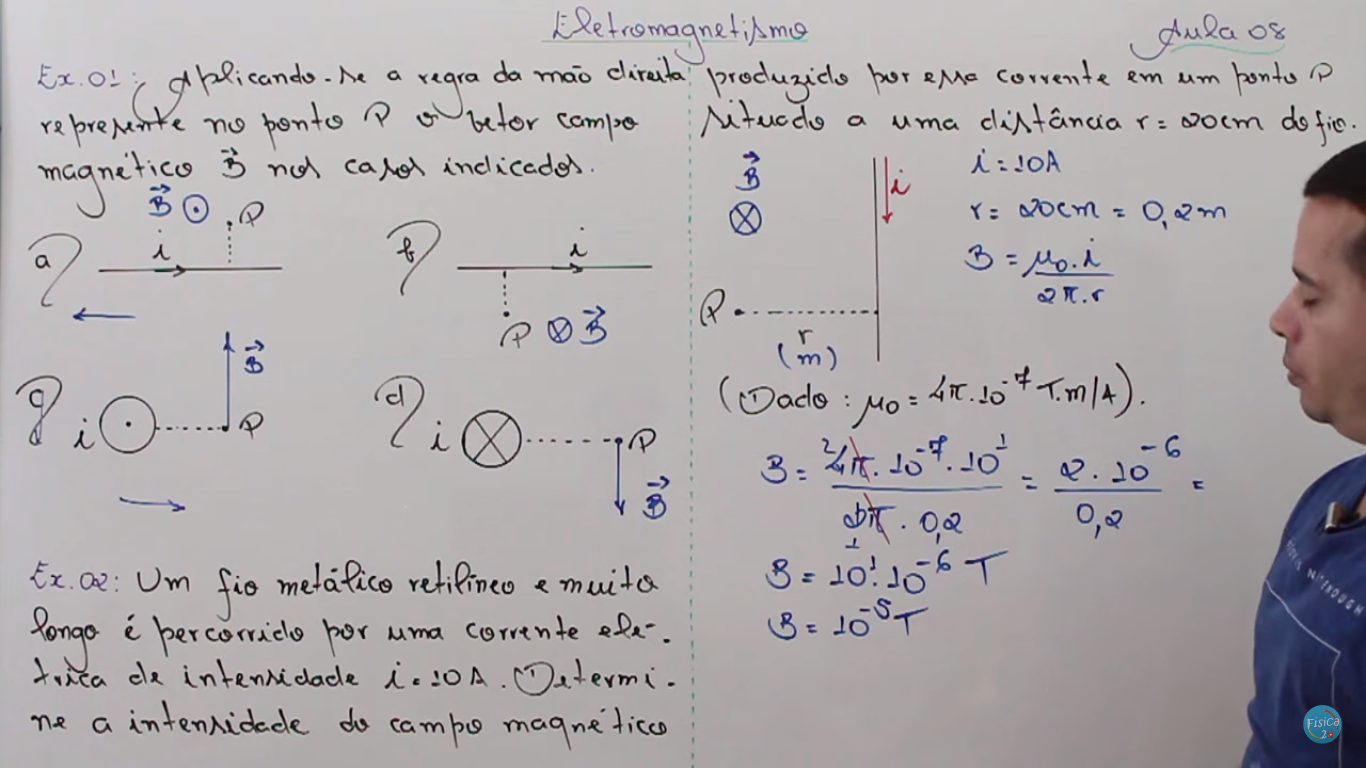 Eletromagnetismo
Aula 08
Ex. 01: Aplicando-se a regra da mão direita
represente no ponto P o vetor campo
magnético B⃗ nos casos indicados.
a)
B⃗ ⊙ P
i
b)
i
P ⊗ B⃗
c)
i
B⃗
P
d)
i
P
B⃗
Ex. 02: Um fio metálico retilíneo e muito
longo é percorrido por uma corrente elé-
trica de intensidade i = 10A. Determi-
ne a intensidade do campo magnético
produzido por essa corrente em um ponto P
situado a uma distância r = 20cm do fio.
B⃗
⊗
i
P
r
(m)
i = 10A
r = 20cm = 0,2m
B = μ₀.i / 2π.r
(Dado: μ₀ = 4π.10⁻⁷ T.m/A).
B = ²4π.10⁻⁷.10¹ / 2π.0,2 = 2.10⁻⁶ / 0,2 =
1
B = 10¹.10⁻⁶ T
B = 10⁻⁵ T
Física
2.0